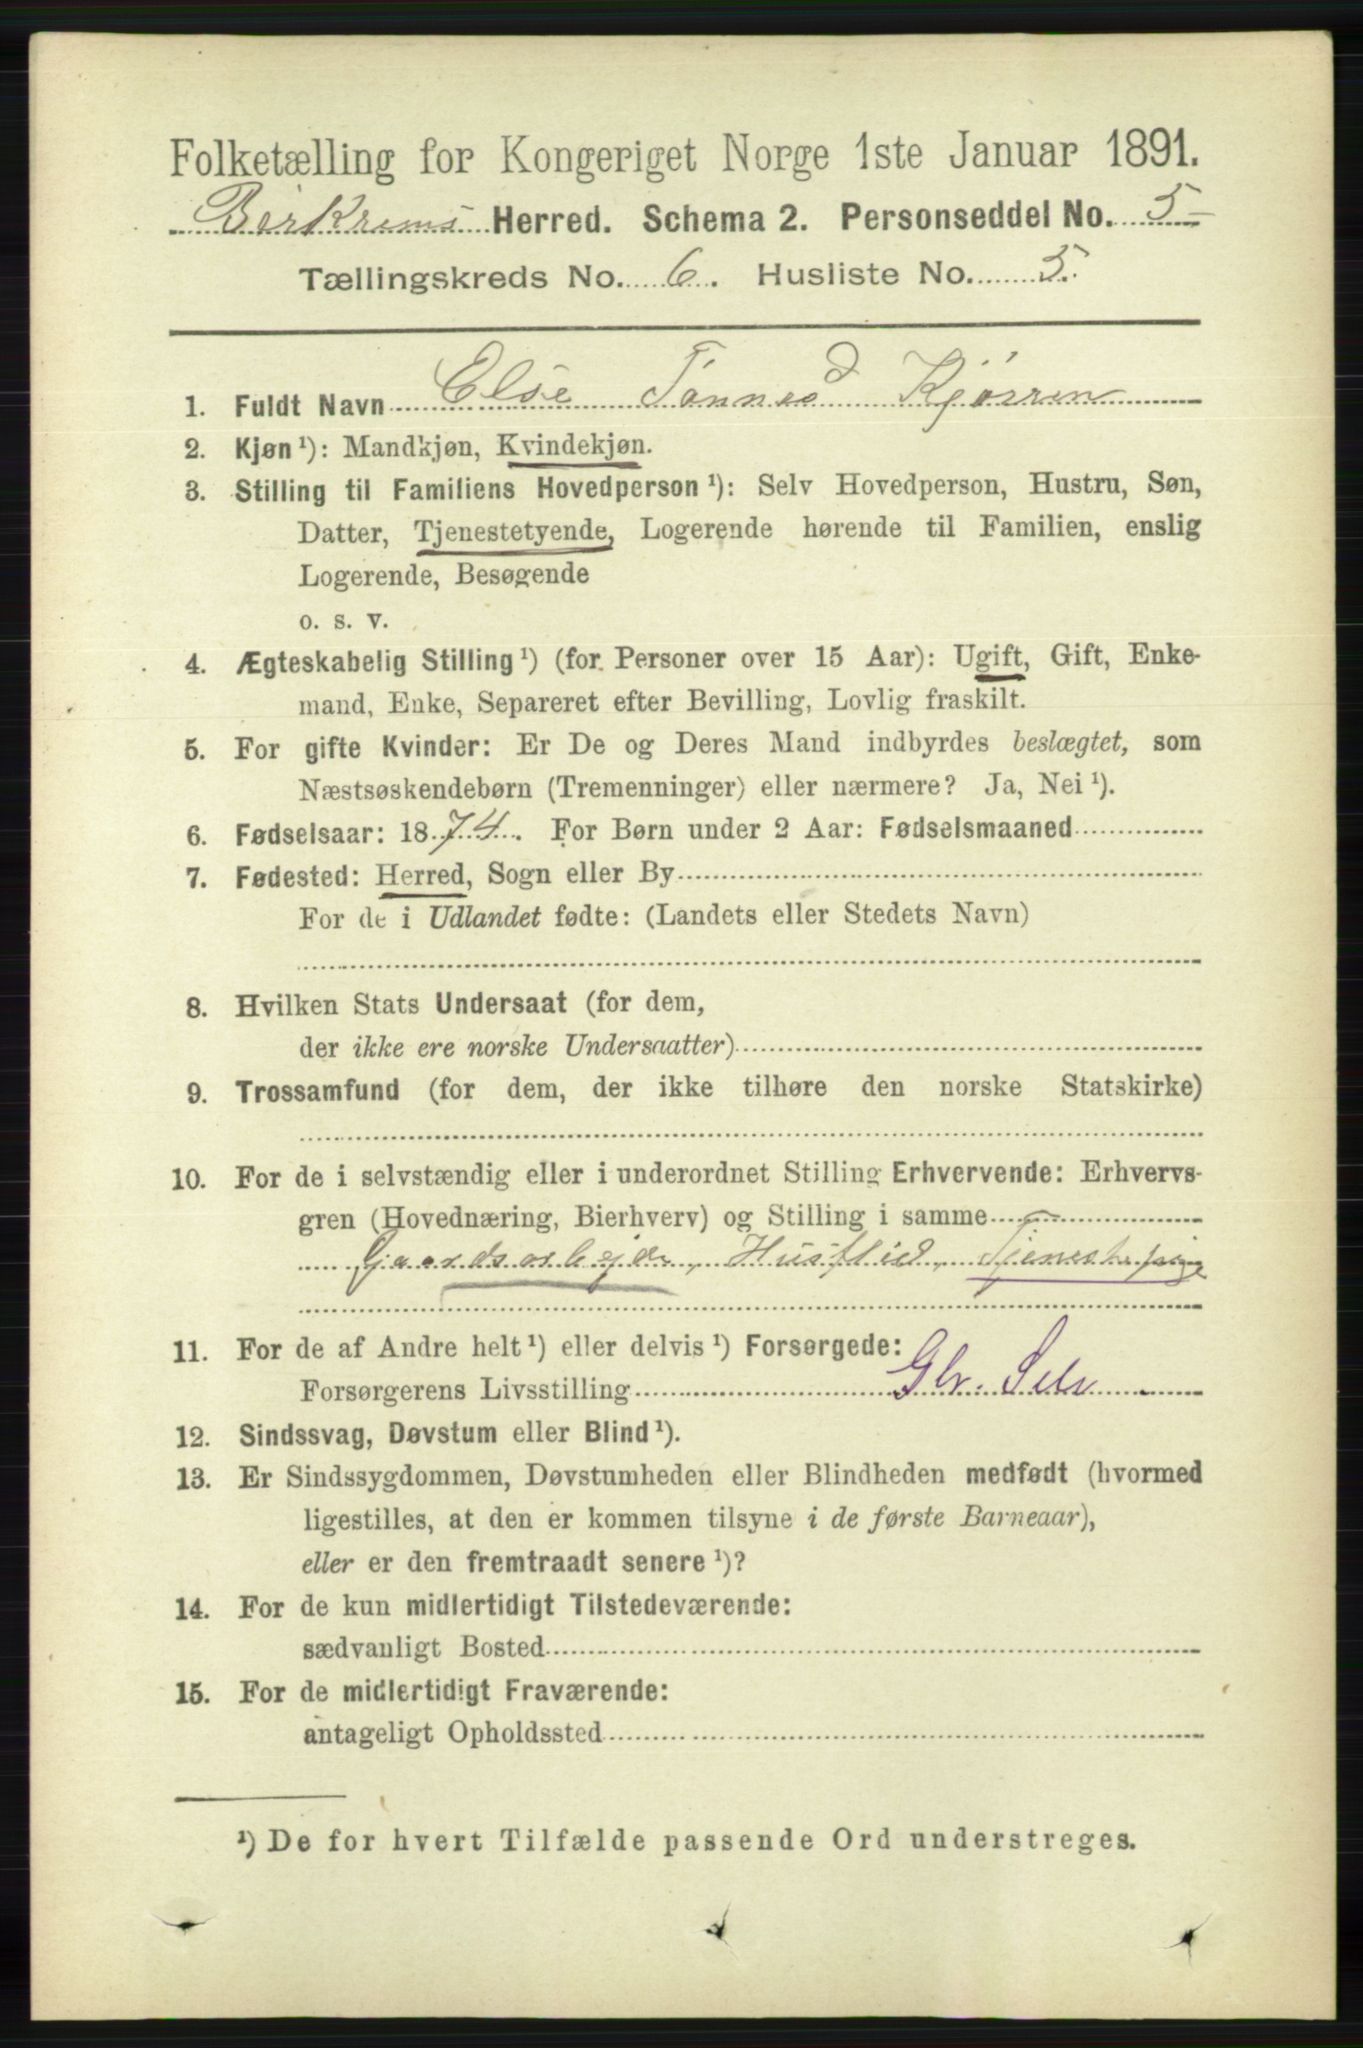 Folketælling for Kongeriget Norge 1ste Januar 1891.
Birkrems Herred. Schema 2. Personseddel No. 5
Tællingskreds No. 6. Husliste No. 5.
1. Fuldt Navn Else Tønnesd Kjørren
2. Kjøn ¹): Mandkjøn, Kvindekjøn.
3. Stilling til Familiens Hovedperson ¹): Selv Hovedperson, Hustru, Søn,
Datter, Tjenestetyende, Logerende hørende til Familien, enslig
Logerende, Besøgende
o. s. v.
4. Ægteskabelig Stilling ¹) (for Personer over 15 Aar): Ugift, Gift, Enke-
mand, Enke, Separeret efter Bevilling, Lovlig fraskilt.
5. For gifte Kvinder: Er De og Deres Mand indbyrdes beslægtet, som
Næstsøskendebørn (Tremenninger) eller nærmere? Ja, Nei ¹).
6. Fødselsaar: 1874. For Børn under 2 Aar: Fødselsmaaned
7. Fødested: Herred, Sogn eller By
For de i Udlandet fødte: (Landets eller Stedets Navn)
8. Hvilken Stats Undersaat (for dem,
der ikke ere norske Undersaatter)
9. Trossamfund (for dem, der ikke tilhøre den norske Statskirke)
10. For de i selvstændig eller i underordnet Stilling Erhvervende: Erhvervs-
gren (Hovednæring, Bierhverv) og Stilling i samme
Gaardsarbejde, Husflid, Tjenestepige
11. For de af Andre helt ¹) eller delvis ¹) Forsørgede:
Forsørgerens Livsstilling Gbr. Selv
12. Sindssvag, Døvstum eller Blind ¹).
13. Er Sindssygdommen, Døvstumheden eller Blindheden medfødt (hvormed
ligestilles, at den er kommen tilsyne i de første Barneaar),
eller er den fremtraadt senere ¹)?
14. For de kun midlertidigt Tilstedeværende:
sædvanligt Bosted
15. For de midlertidigt Fraværende:
antageligt Opholdssted
¹) De for hvert Tilfælde passende Ord understreges.